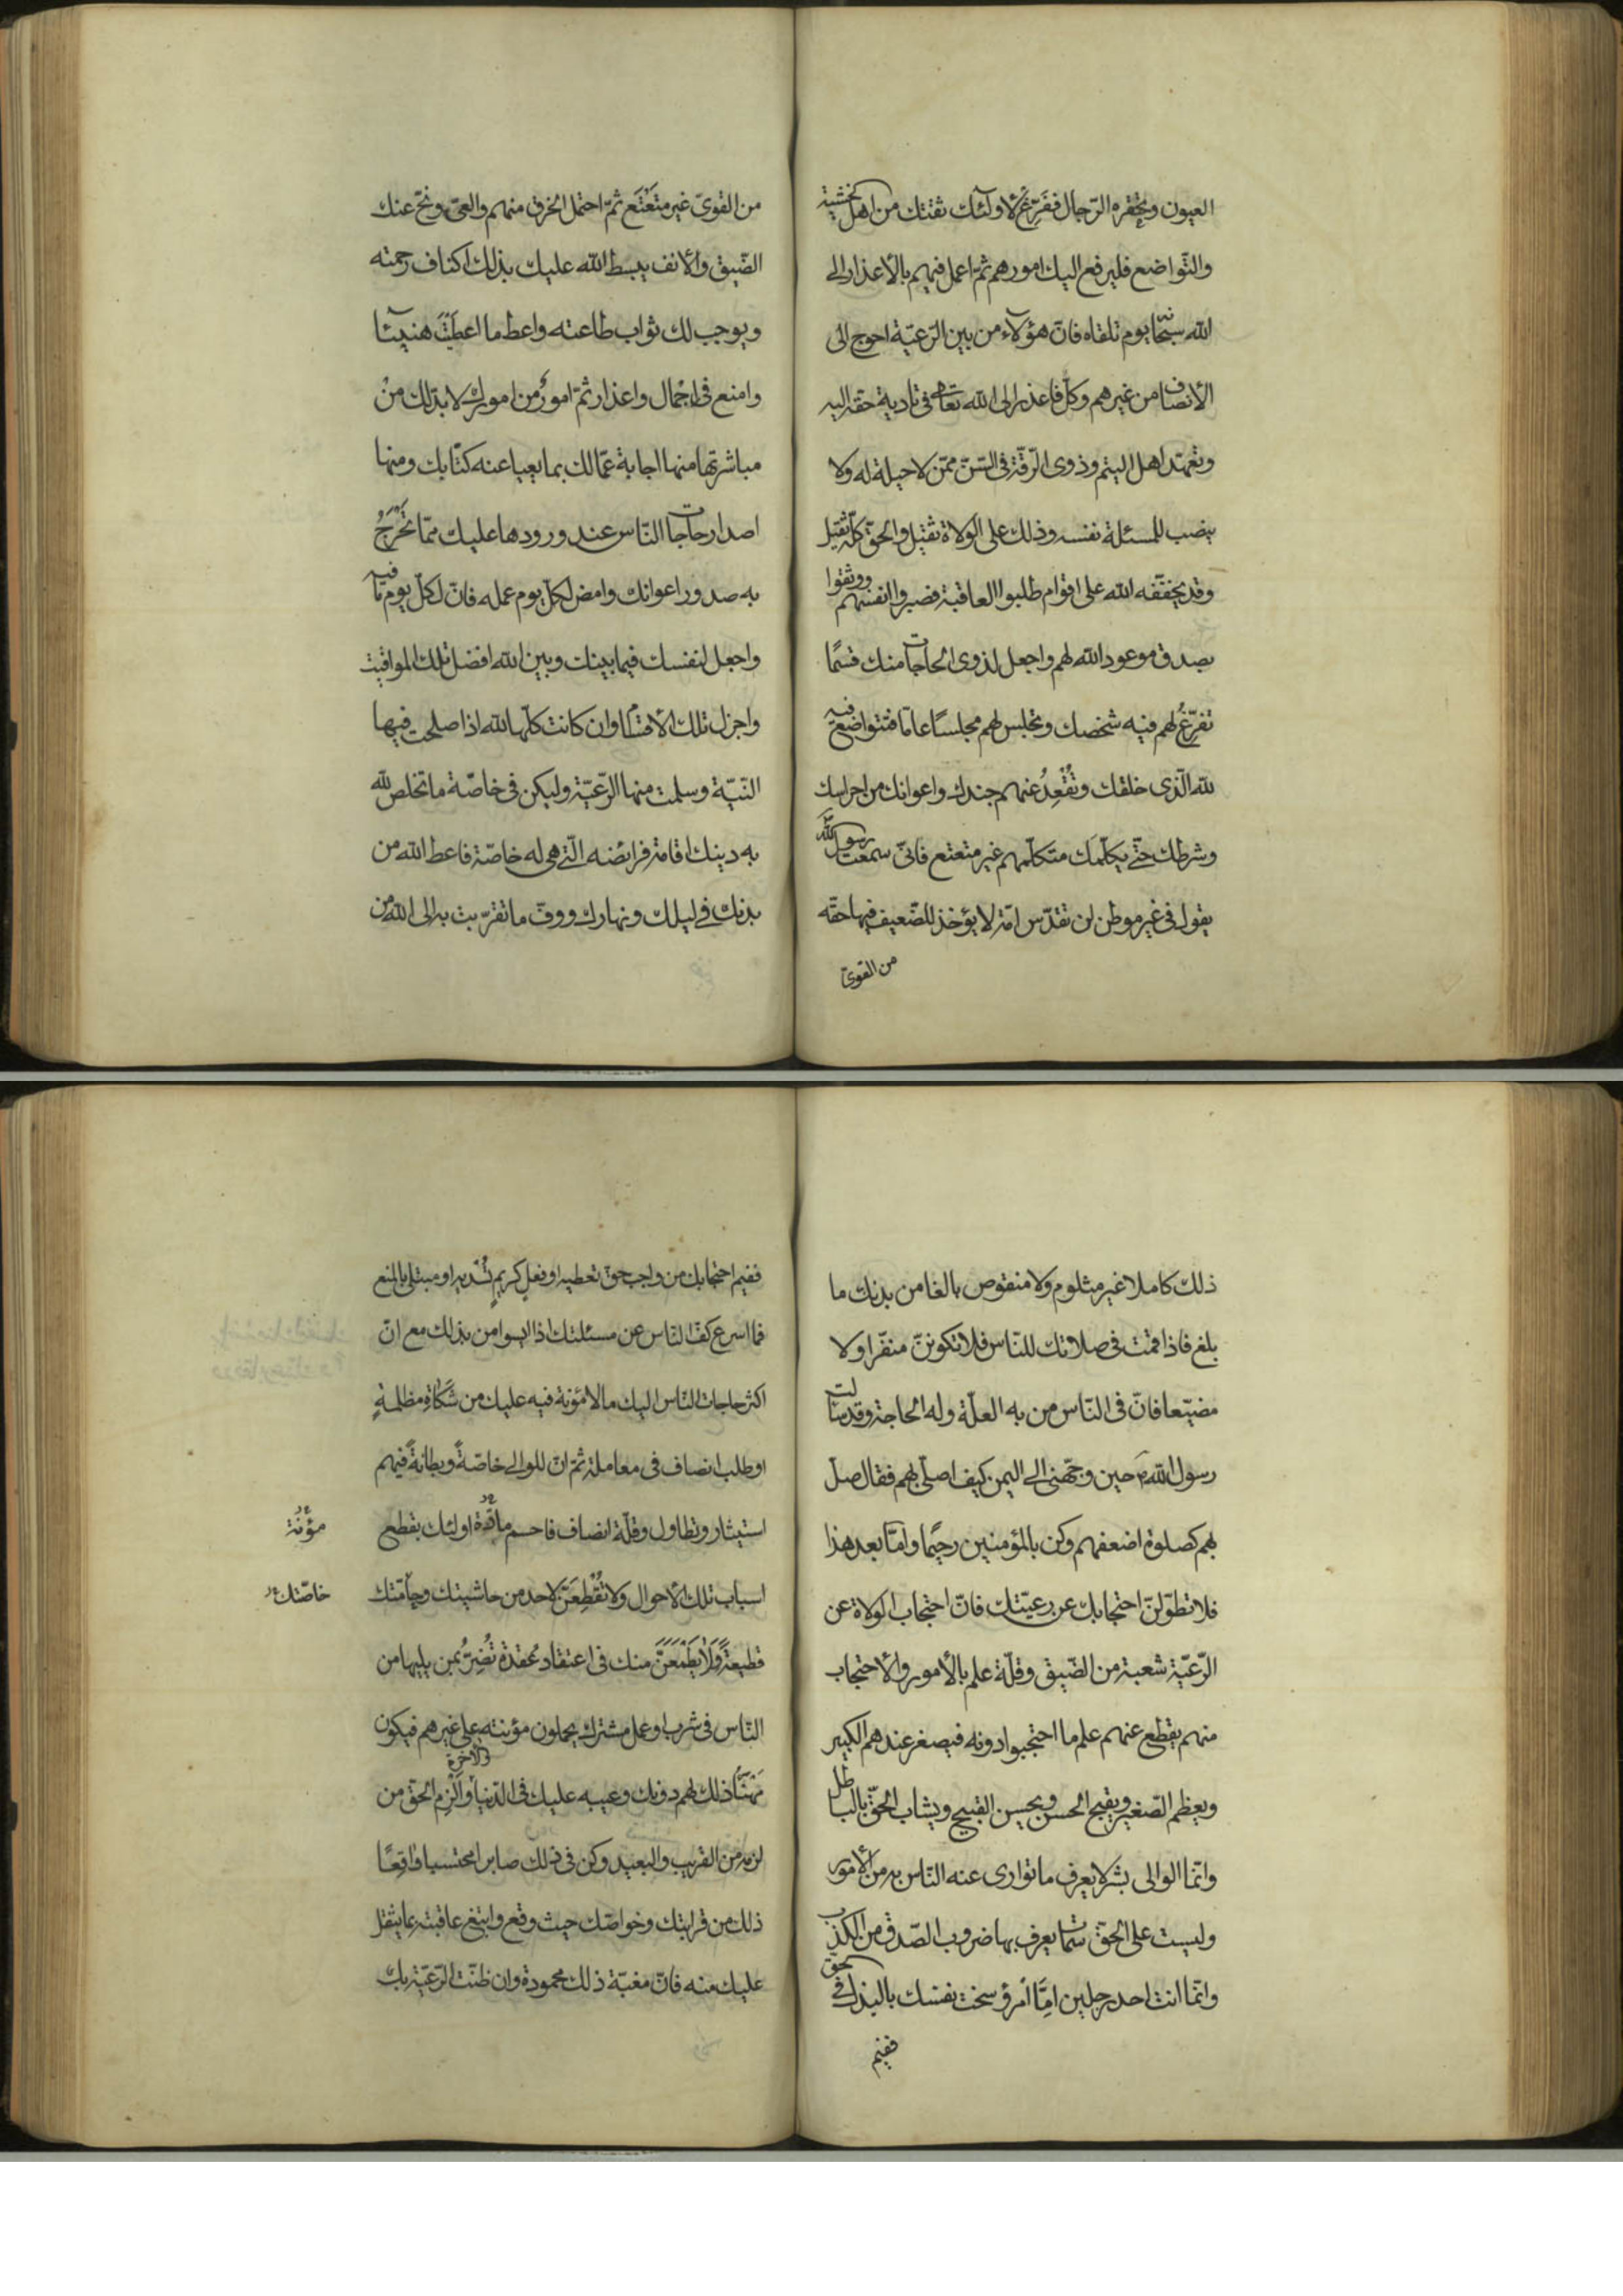 العيون وتحقره الرّجال ففرّغ لاولٓئك ثقتك من اهل الخشية
والتّواضع فليرفع اليك امورهم ثمّ اعمل فيهم بالاعذار الى
الله سبحانه يوم تلقاه فانّ هؤلآء من بين الرّعيّة احوج الى
الأنصاف من غيرهم وكلّ فاعذر الى الله تعالى فى تادية حقّه اليه
وتعهّد اهل اليتم وذوى الرّقّة فى السّنّ ممّن لا حيلة له ولا
ينصب للمسئلة نفسه وذلك على الولاة ثقيل والحقّ كلّه ثقيل
وقد يخفّفه الله على اقوام طلبوا العاقبة فصبروا انفسهم ووثقوا
بصدق موعود الله لهم واجعل لذوى الحاجات منك قسمًا
تفرّغُ لهم فيه شخصك وتجلس لهم مجلسًا عامّا فتتواضع فيه
لله الّذى خلقك وتُقْعِدُ عنهم جندك واعوانك من احراسك
وشرطك حتّى يكلّمك متكلّمهم غير متعتع فانّى سمعت رسول الله
يقول فى غير موطن لن تقدّس امّة لا يؤخذ للضّعيف فيها حقّه
من القوىّ
من القوىّ غير متَعْتَع ثمّ احتمل الخرق منهم والعىّ ونحّ عنك
الضّيق والأنف يبسط الله عليك بذلك اكناف رحمته
ويوجب لك ثواب طاعته واعط ما اعطَيْتَ هنيٓئا
وامنع فى اجْمال واعذار ثمّ امورٌ من امورك لا بدّ لك منْ
مباشرتها منها اجابة عمّالك بما يعيا عنه كتّابك ومنها
اصدار حاجات النّاس عند ورودها عليك ممّا تَحْرَجُ
به صدور اعوانك وامض لكلّ يوم عمله فانّ لكلّ يوم ما فيه
واجعل لنفسك فيما بينك وبين الله افضل تلك المواقيت
واجزل تلك الأقسام وان كانت كلّها لله اذا صلحت فيها
النّيّة وسلمت منها الرّعيّة وليكن فى خاصّة ما تخلص لله
به دينك اقامة فرائضه الّتى هى له خاصّة فاعط الله من
بدنك فى ليلك ونهارك ووفّ ما تقرّبت به الى الله من
ذلك كاملا غير مثلوم ولا منقوص بالغا من بدنك ما
بلغ فاذا قمت فى صلاتك للنّاس فلا تكوننّ منفّرا ولا
مضيّعا فانّ فى النّاس من به العلّة وله الحاجة وقد سالت
رسول الله ص حين وجّهنى الى اليمن كيف اصلّى بهم فقال صلّ
بهم كصلوة اضعفهم وكن بالمؤمنين رحيمًا وامّا بعد هذا
فلا تطوّلنّ احتجابك عن رعيّتك فانّ احتجاب الولاة عن
الرّعيّة شعبة من الضّيق وقلّة علم بالأمور والأحتجاب
منهم يقطع عنهم علم ما احتجبوا دونه فيصغر عندهم الكبير
ويعظم الصّغير ويقبح الحسن ويحسن القبيح ويشاب الحقّ بالباطل
وانّما الوالى بشر لا يعرف ما توارى عنه النّاس به من الأمور
وليست على الحقّ سمات يعرف بها ضروب الصّدق من الكذب
وانّما انت احد رجلين امّا امرؤ سخت نفسك بالبذل فى الحقّ
ففيم
ففيم احتجابك من واجب حقّ تعطيه او فعلٍ كريمٍ تُسْديه او مبتلى بالمنع
فما اسرع كفّ النّاس عن مسئلتك اذا ايسوا من بذلك مع انّ
اكثر حاجات النّاس اليك ما لا مؤنة فيه عليك من شكاة مظلمةٍ
او طلب انصاف فى معاملة ثمّ انّ للوالى خاصّةً وبطانةً فيهم
استيثار وتطاول وقلّة انصاف فاحسم مادّة اولئك بقطع
مؤْنة
اسباب تلك الأحوال ولا تُقْطِعَنّ لاحد من حاشيتك وحامّتك
خاصّتك
قطيعةً ولا يَطْمَعَنَّ منك فى اعتقاد عُقدة تُضِرُّ بمن يليها من
النّاس فى شرب او عمل مشترك يحملون مؤنته على غيرهم فيكون
مَهْنَأُ ذلك لهم دونك وعيبه عليك فى الدّنيا والاخرة وألزم الحقّ من
لزمه من القريب والبعيد وكن فى ذلك صابرا محتسبا واقعًا
ذلك من قرابتك وخواصّك حيث وقع وابتغ عاقبته بما يثقل
عليك منه فانّ مغبّة ذلك محمودة وان ظنّت الرّعيّة بك